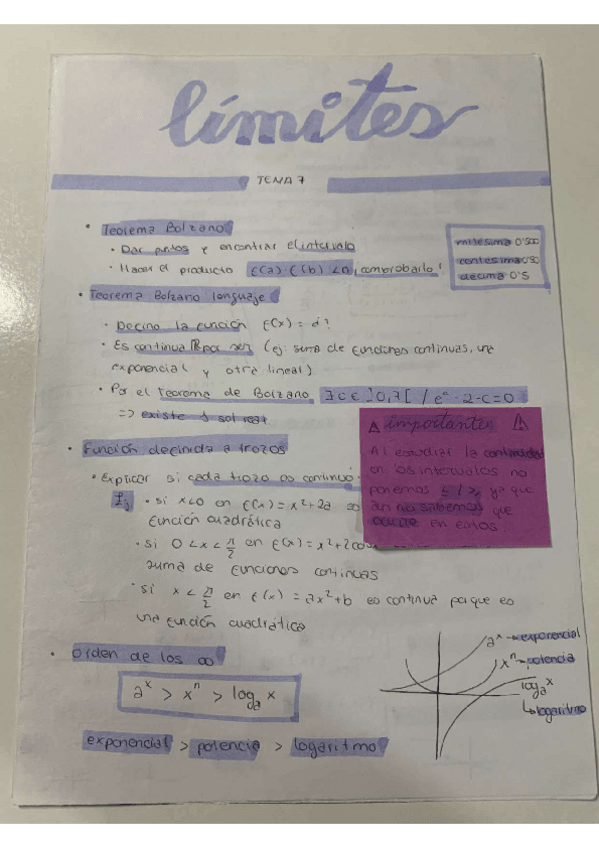 límites
TEMA 7
• Teorema Bolzano
• Dar puntos y encontrar el intervalo
• Hacer el producto f(a) f(b) < 0, comprobarlo!
milésima 0'500
centésima 0'50
décima 0'5
• Teorema Bolzano lenguaje
• Defino la función f(x) = d?
• Es continua por ser (ej: suma de funciones continuas, una
exponencial y otra lineal)
• Por el teorema de Bolzano ∃ c ∈ ]0,7[ / e^c - 2 - c = 0
=> existe 1 sol real
• Función definida a trozos
• Explicar si cada trozo es continuo
Ej • si x<0 en f(x) = x²+2a es
función cuadrática
• si 0 < x < π/2 en f(x) = x²+2cos
suma de funciones continuas
• si x < π/2 en f(x) = ax²+b es continua porque es
una función cuadrática
⚠ importantes ⚠
Al estudiar la continuidad
en los intervalos no
ponemos ≤ / ≥ ya que
aún no sabemos que
ocurre en estos.
• Orden de los ∞
a^x > x^n > log_a x
exponencial > potencia > logaritmo
a^x → exponencial
x^n → potencia
log_a x
↳ logaritmo